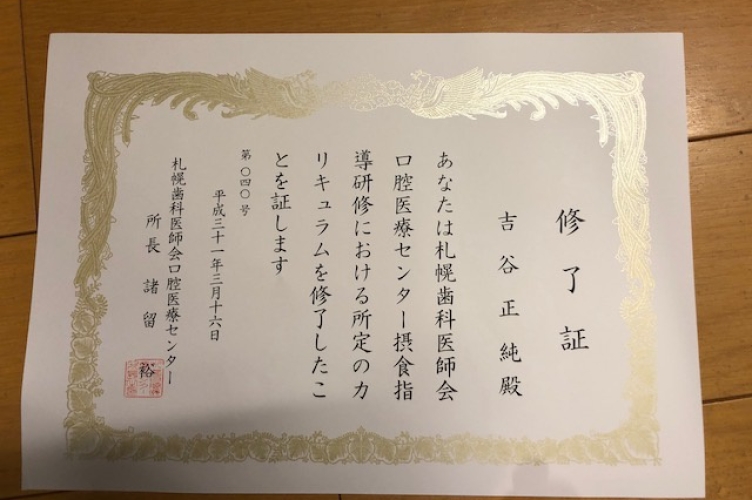 修了証
吉谷正純殿
あなたは札幌歯科医師会
口腔医療センター摂食指
導研修における所定のカ
リキュラムを修了したこ
とを証します
第〇四〇号
平成三十一年三月十六日
札幌歯科医師会口腔医療センター
所長 諸留 裕